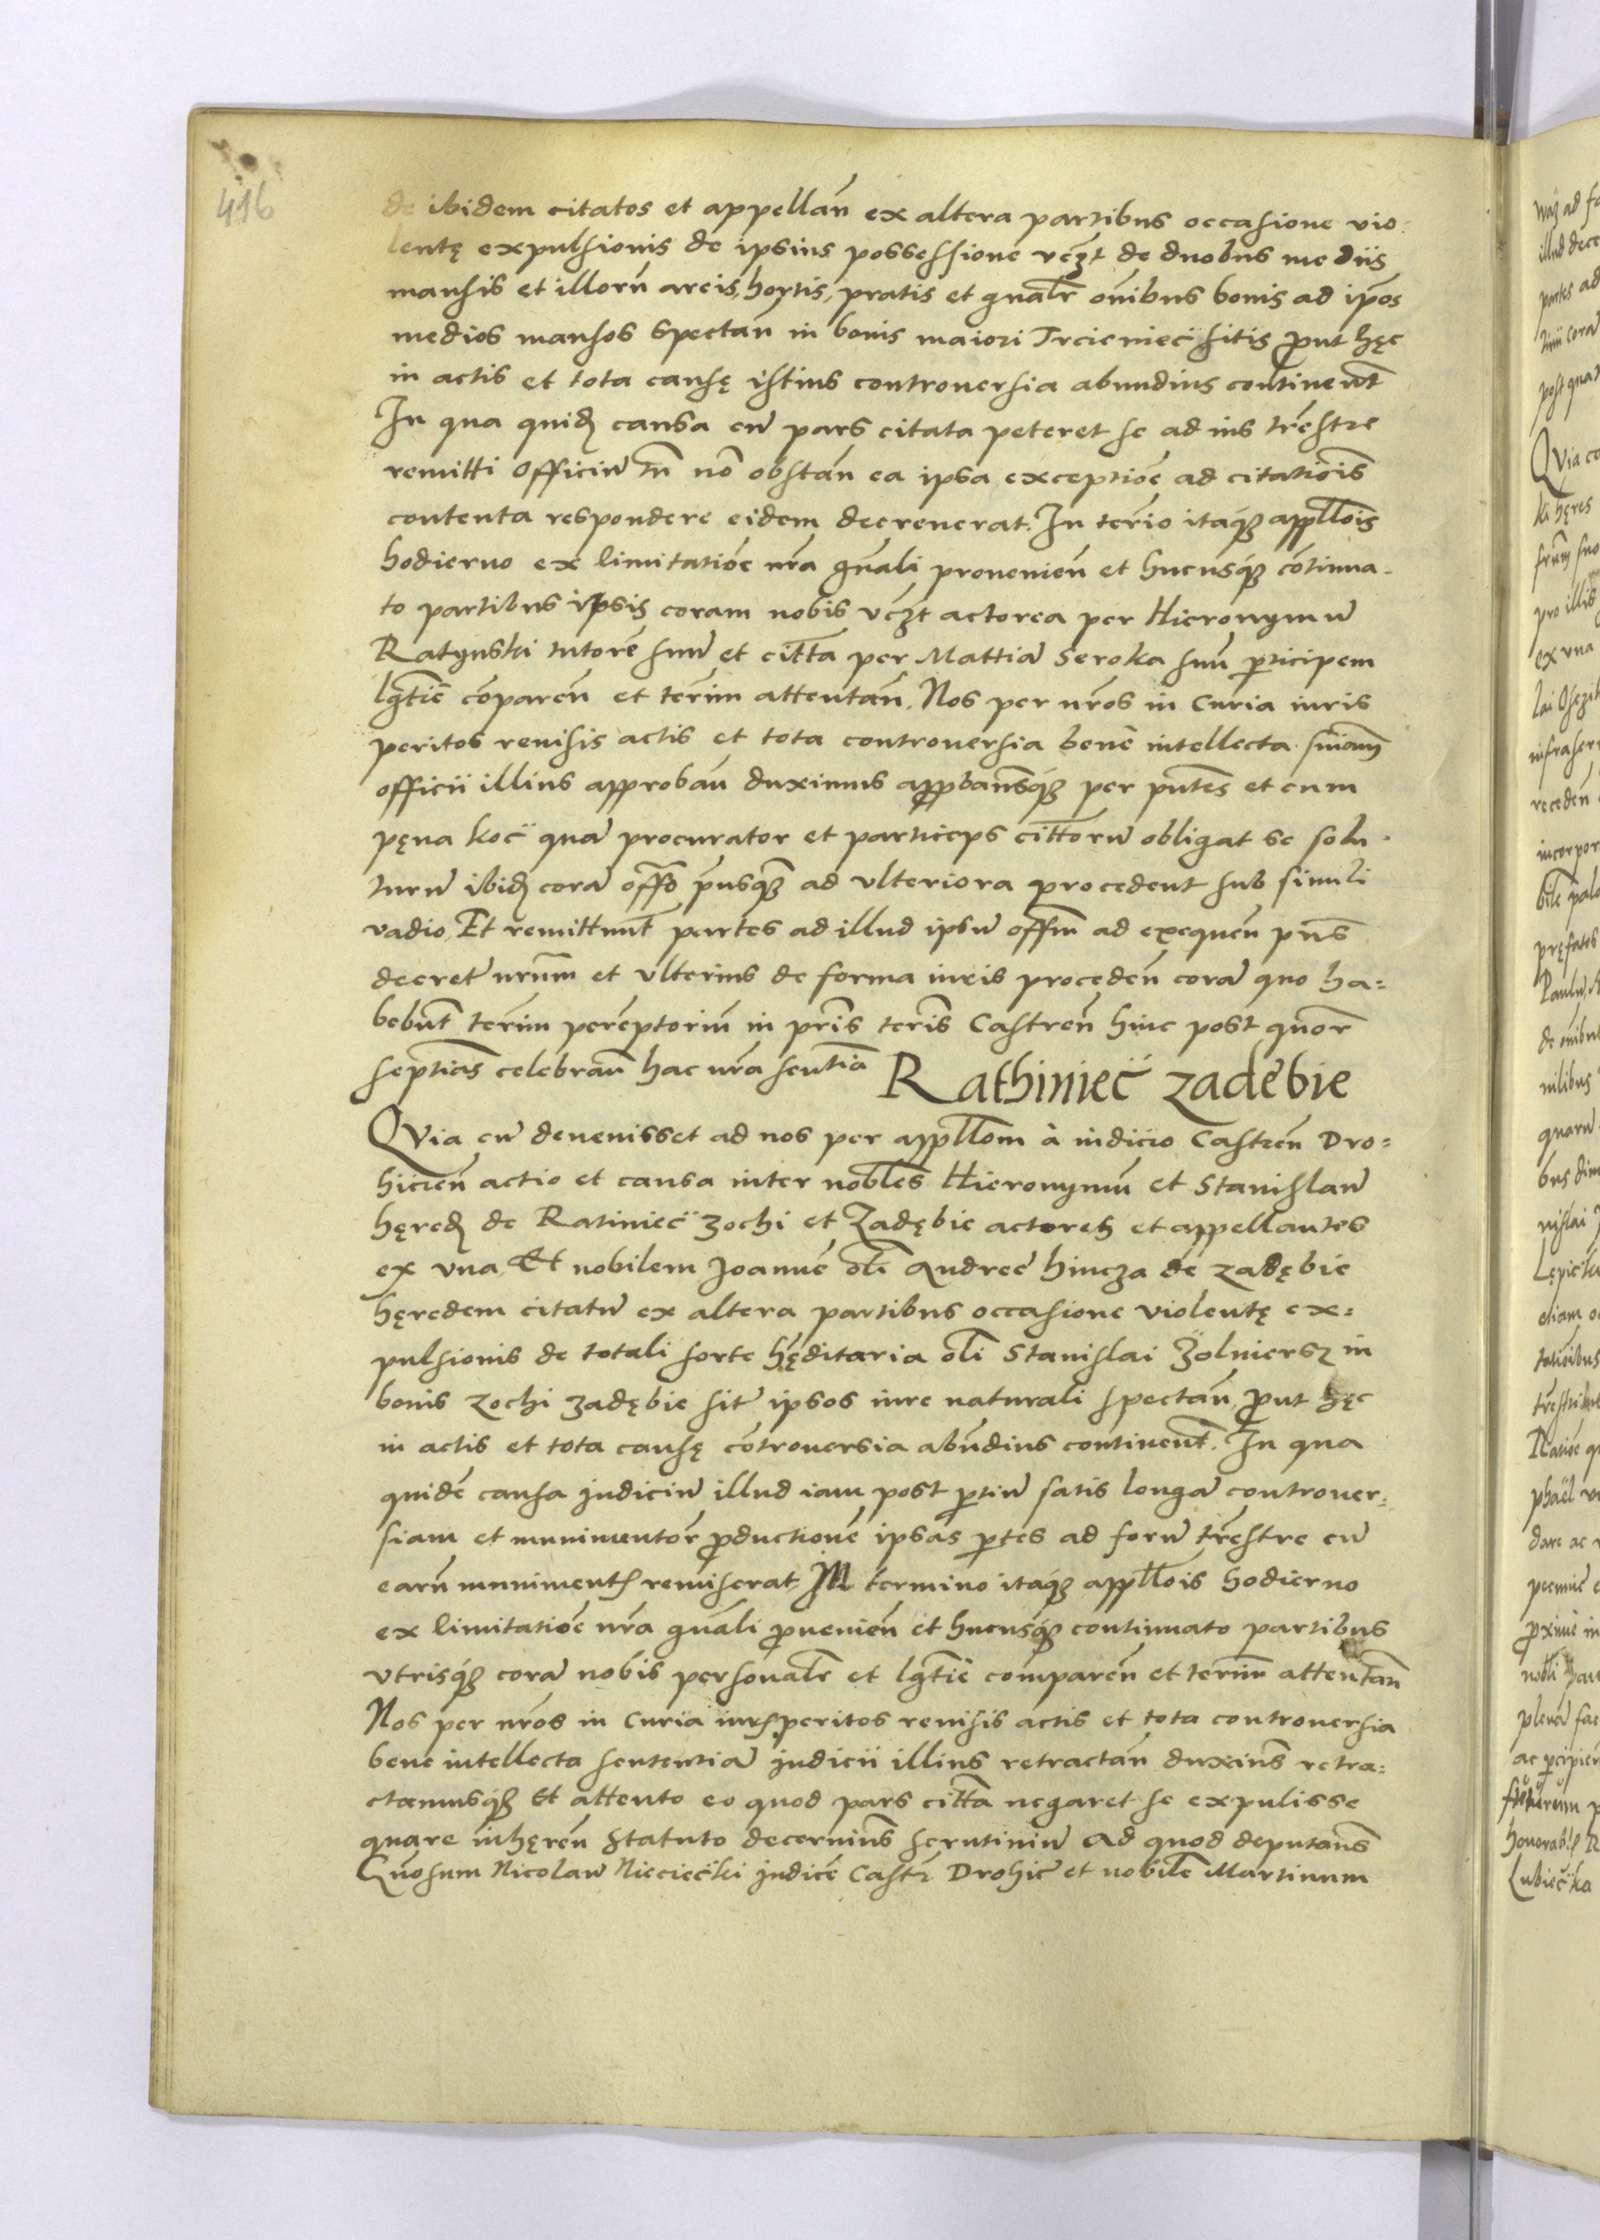 416
de ibidem citatos et appellan̄ ex altera partibus occasione vio-
lentę expulsionis de ipsius possessione vcꝫt de duobus mediis
mansis et illorū areis, hortis, pratis et gnālr oīnibus bonis ad ipōs
medios mansos spectan̄ in bonis maiori Trcienieč sitis ꝓut hęc
in actis et tota causę istius controuersia abundius continent̄
In qua quiđ causa cū pars citata peteret se ad ius trēstre
remitti Officiū tn̄ nō obstan̄ ea ipsa exceptiōe ad citatiōis
contenta respondere eidem decreuerat. In terīo itaqꝫ appll̄ois
hodierno ex limitatiōe nr̄a gnāli prouenien̄ et hucusqꝫ cōtinua-
to partibus ipsis coram nobis vcꝫt actorea per Hieronymū
Ratynski tutorē suū et citt̄a per Mattiā Seroka suū ꝑticipem
lgt̄ie cōparen̄ et terīm attentan̄. Nos per nr̄os in Curia iuris
peritos reuisis actis et tota controuersia bene intellecta sniām
officii illius approban̄ duximus appꝛobam̄sqꝫ per pn̄tes et cum
pęna koč quā procurator et particeps citt̄orū obligat se solu-
turū ibiđ corā off̄o pr̄usqꝫ ad vlteriora procedent sub simili
vadio. Et remittunt̄ partes ad illud ipsū offm̄ ad exequen̄ pn̄s
decretū nr̄um et vlterius de forma iuris proceden̄ corā quo ha=
bebunt̄ terīm perēptoriū in prīs terīs Castren̄ hinc post quor̄
septiās celebran̄ hac nr̄a sentn̄tia Rathinieč zadębie
QVia cū deuenisset ad nos per appll̄om à iudicio Castren̄ Dro=
hicien̄ actio et causa inter nobl̄es Hieronymū et Stanislaū
hęređ de Ratinieč zochi et Zadębie actores et appellantes
ex vna, Et nobilem Joannē olī Andreę hincza de zadębie
hęredem citatū ex altera partibus occasione violentę ex=
pulsionis de totali sorte hęditaria olī Stanislai Żolniersz in
bonis zochi zadębie sit̄ ipsos iure naturali spectan̄, ꝓut hęc
in actis et tota causę cōtrouersia abūdius continent̄. In qua
quidē causa judiciū illud iam post ꝑtiū satis longā controuer=
siam et munimentor̄ ꝓductionē ipsas ꝑtes ad forū trēstre cū
earū muniment̄ remiserat In termino itaqꝫ appll̄ois hodierno
ex limitatiōe nr̄a gnāli ꝓuenien̄ et hucusqꝫ continuato partibus
vtrisqꝫ corā nobis personalr̄ et lgt̄ie comparen̄ et terīm attentan̄
Nos per nr̄os in Curia iurisperitos reuisis actis et tota controuersia
bene intellecta sententiā judicii illius retractan̄ duxim̄s retra=
ctamusqꝫ Et attento eo quod pars citt̄a negaret se expulisse
quare inhęren̄ Statuto decernim̄s scrutiniū Ad quod deputam̄s
Gnōsum Nicolaū Nieciečki judicē Castr̄ Drohič et nobilē Martinum